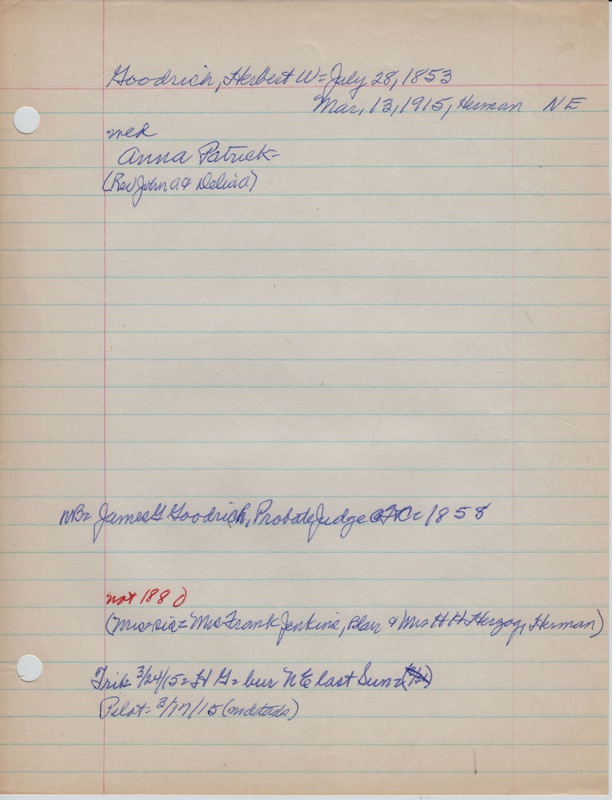 Goodrich, Herbert W = July 28, 1853
Mar, 13, 1915, Herman NE
med
Anna Patrick -
(Rev John A & Delia A)
NB = James G Goodrich, Probate Judge 1858
not 1880
(Mrs sis = Mrs Frank Jenkins, Blair & Mrs H H Herzog, Herman)
Trib = 3/24/15 = H G = bur N E last Sun =
Pilot - 3/17/15